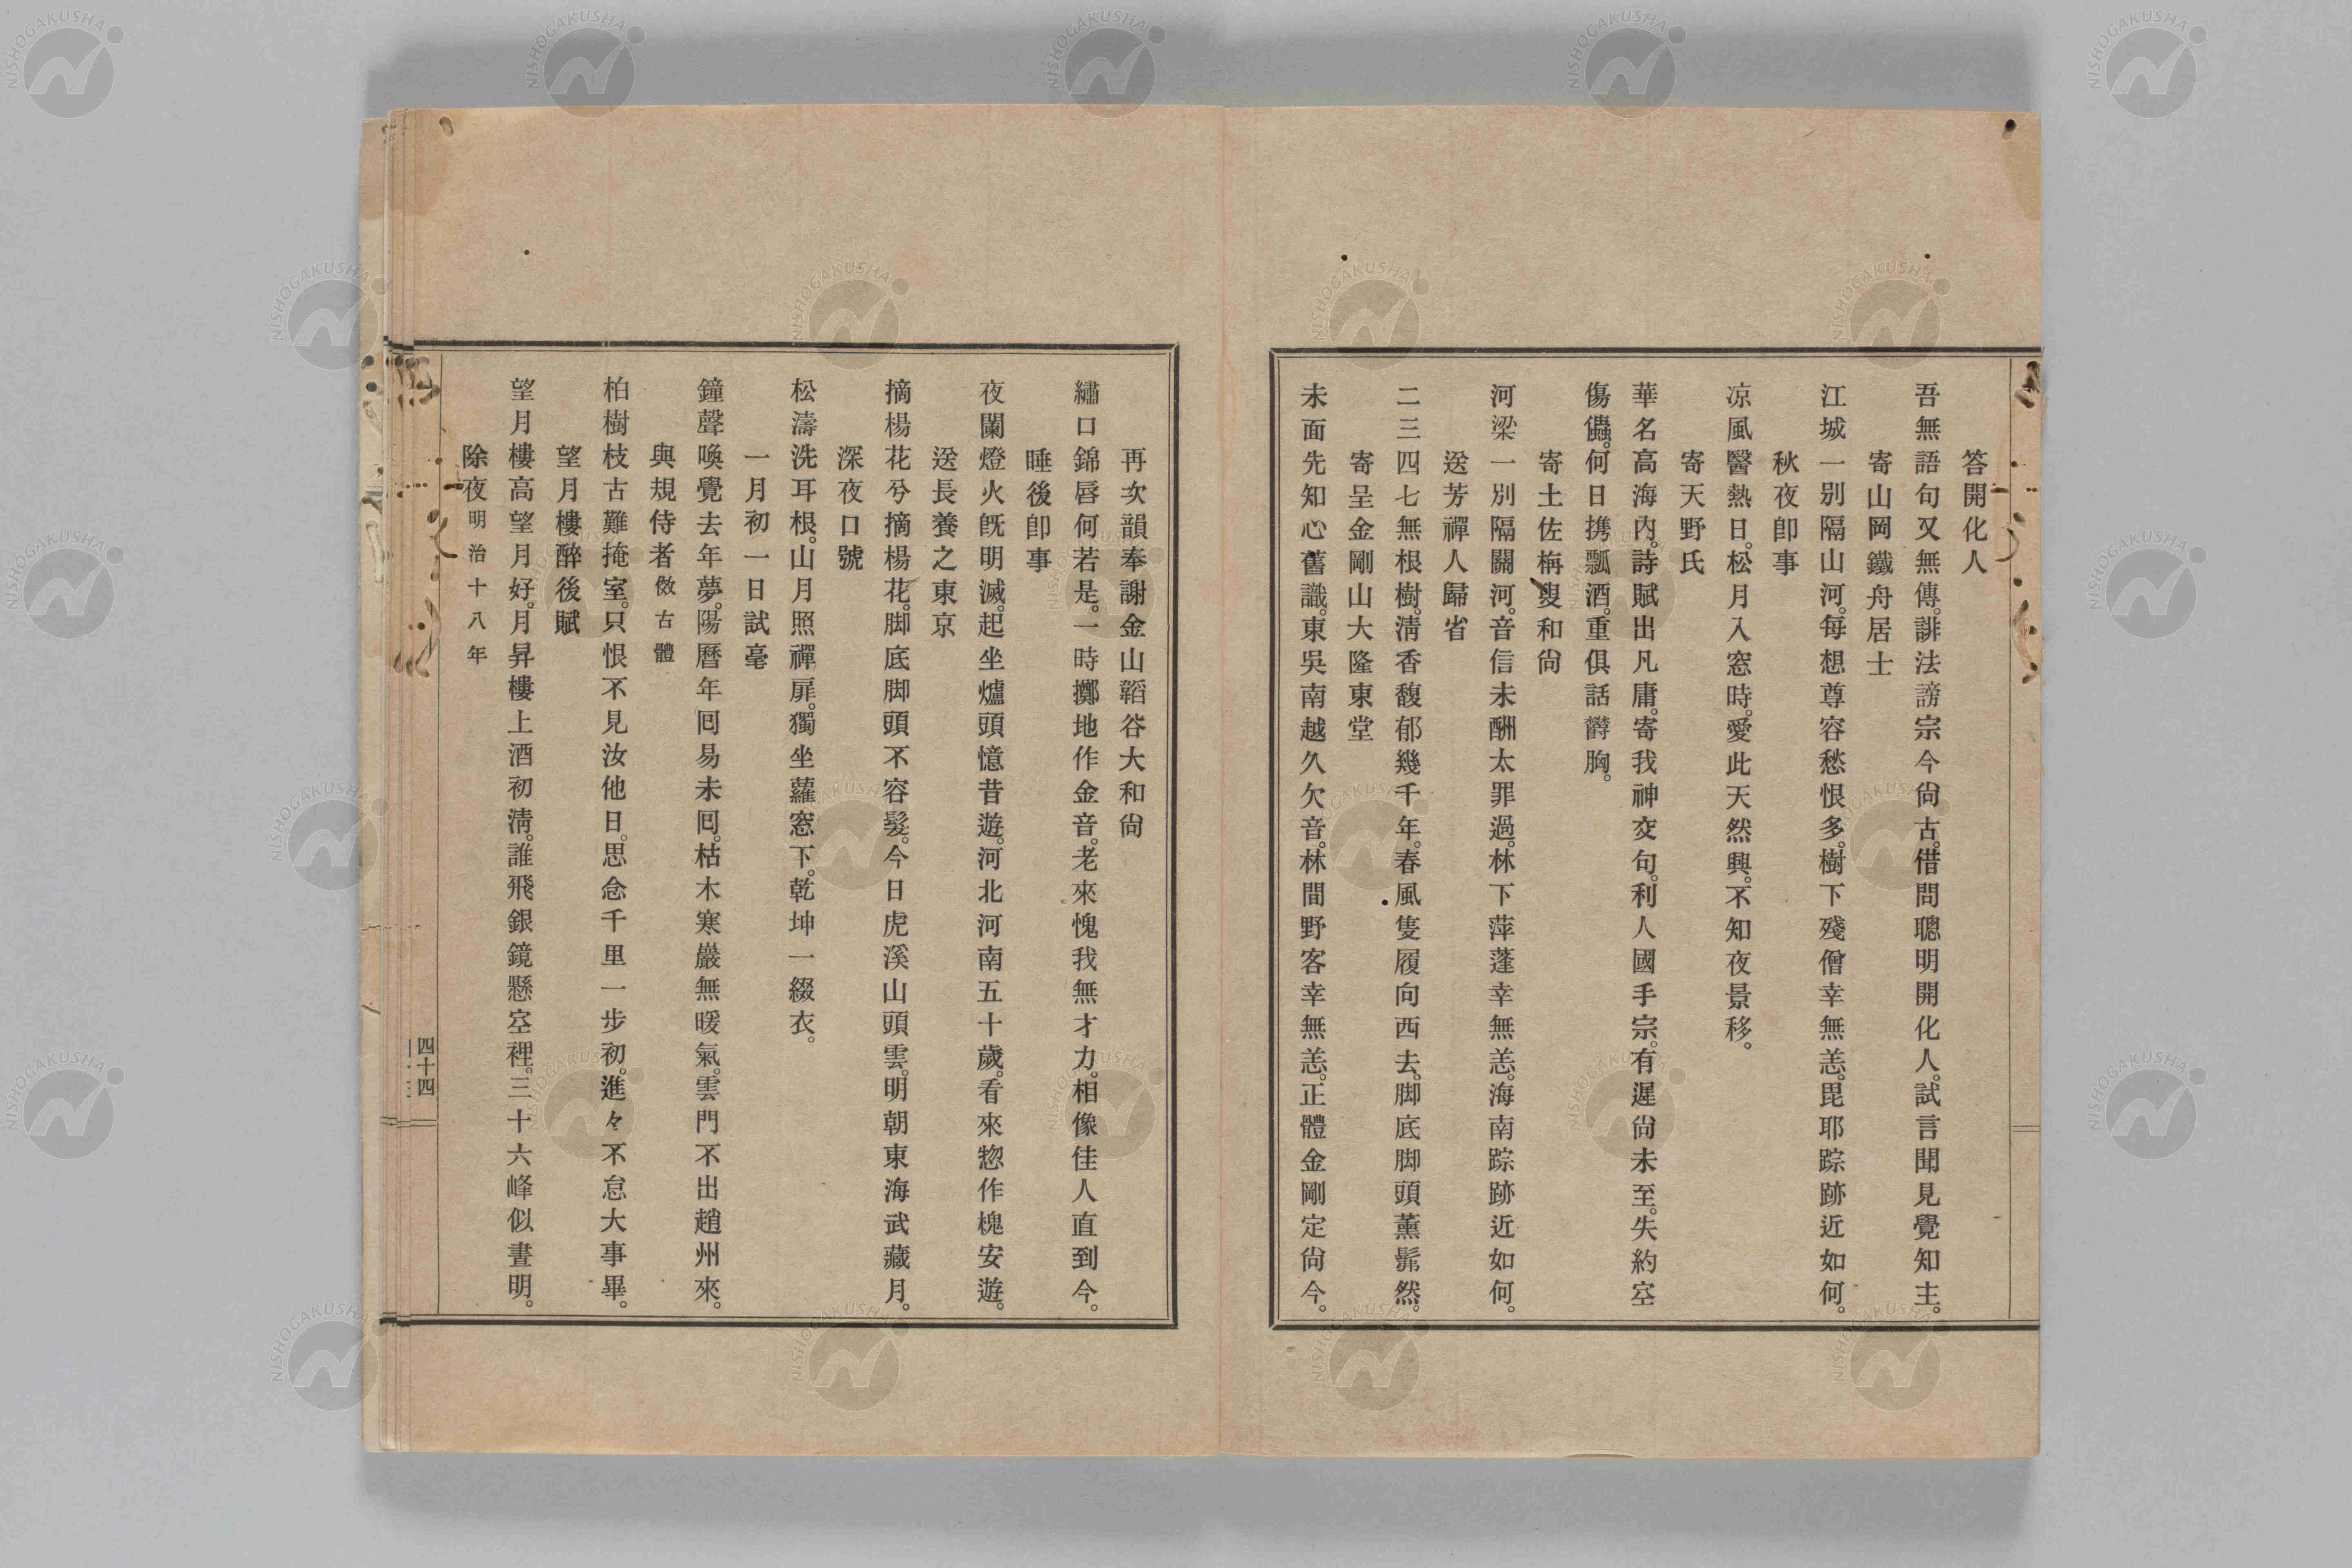 答開化人
吾無語句又無傳。誹法謗宗今尙古。借問聰明開化人。試言聞見覺知主。
寄山岡鐵舟居士
江城一別隔山河。每想尊容愁恨多。樹下殘僧幸無恙。毘耶踪跡近如何。
秋夜卽事
凉風醫熱日。松月入窓時。愛此天然興。不知夜景移。
寄天野氏
華名高海內。詩賦出凡庸。寄我神交句。利人國手宗。有遲尙未至。失約空
傷儘。何日携瓢酒。重俱話欝胸。
寄土佐梅叟和尙
河梁一別隔關河。音信未酬太罪過。林下萍蓬幸無恙。海南踪跡近如何。
送芳禪人歸省
二三四七無根樹。淸香馥郁幾千年。春風隻履向西去。脚底脚頭薰髴然。
寄呈金剛山大隆東堂
未面先知心舊識。東吳南越久欠音。林間野客幸無恙。正體金剛定尙今。
再次韻奉謝金山韜谷大和尙
繡口錦唇何若是。一時擲地作金音。老來愧我無才力。相像佳人直到今。
睡後卽事
夜闌燈火旣明滅。起坐爐頭憶昔遊。河北河南五十歲。看來惣作槐安遊。
送長養之東京
摘楊花兮摘楊花。脚底脚頭不容髮。今日虎溪山頭雲。明朝東海武藏月。
深夜口號
松濤洗耳根。山月照禪扉。獨坐蘿窓下。乾坤一綴衣。
一月初一日試毫
鐘聲喚覺去年夢。陽曆年囘易未囘。枯木寒巖無暖氣。雲門不出趙州來。
與規侍者傚古體
柏樹枝古難掩室。只恨不見汝他日。思念千里一步初。進々不怠大事畢。
望月樓醉後賦
望月樓高望月好。月昇樓上酒初淸。誰飛銀鏡懸空裡。三十六峰似晝明。
除夜明治十八年
四十四